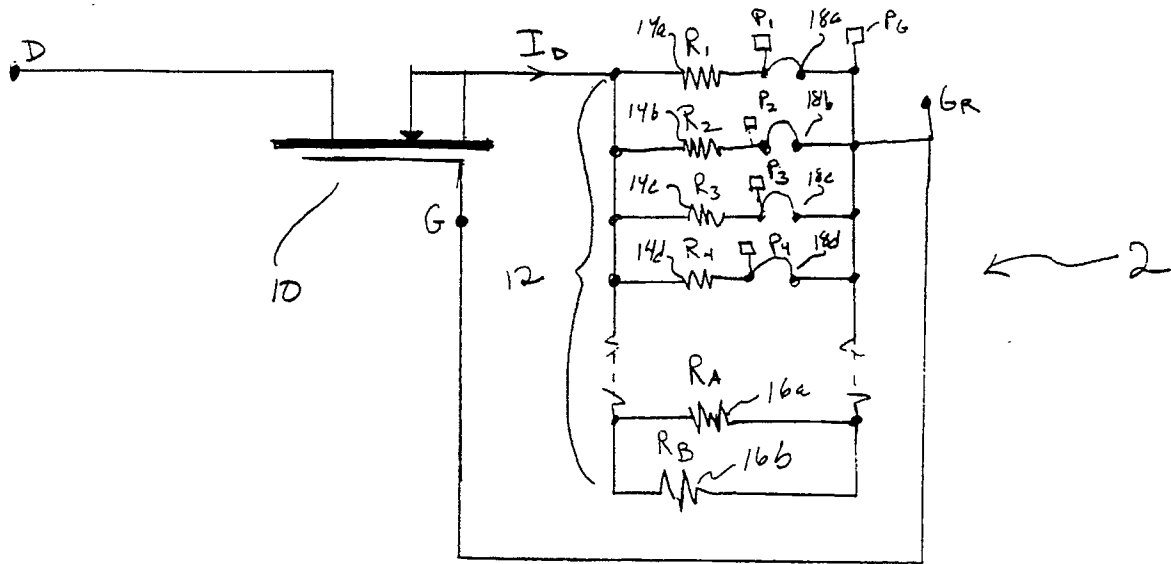 D
I_D
14a
R_1
P_1
18a
P_G
14b
R_2
P_2
18b
G_R
14c
R_3
P_3
18c
14d
R_4
P_4
18d
G
10
12
2
R_A
16a
R_B
16b